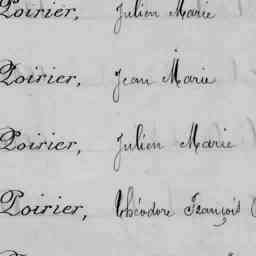 Poirier, Julien Marie
Poirier, Jean Marie
Poirier, Julien Marie
Poirier, Théodore François